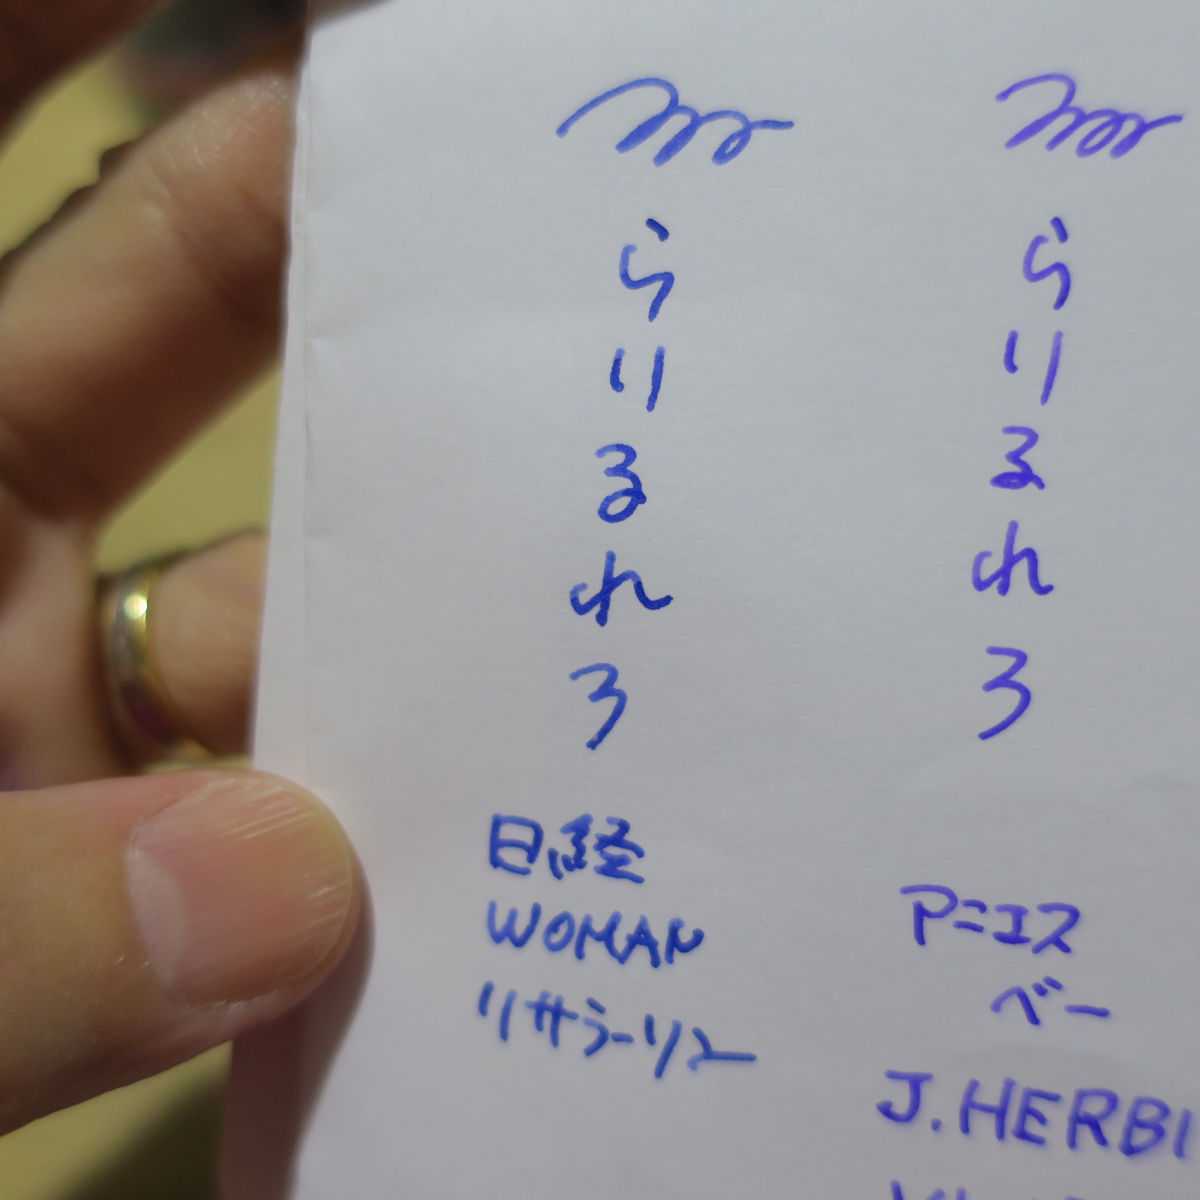 らりるれろ
日経
WOMAN
リサラーソン
らりるれろ
アニエス
ベー
J.HERBI